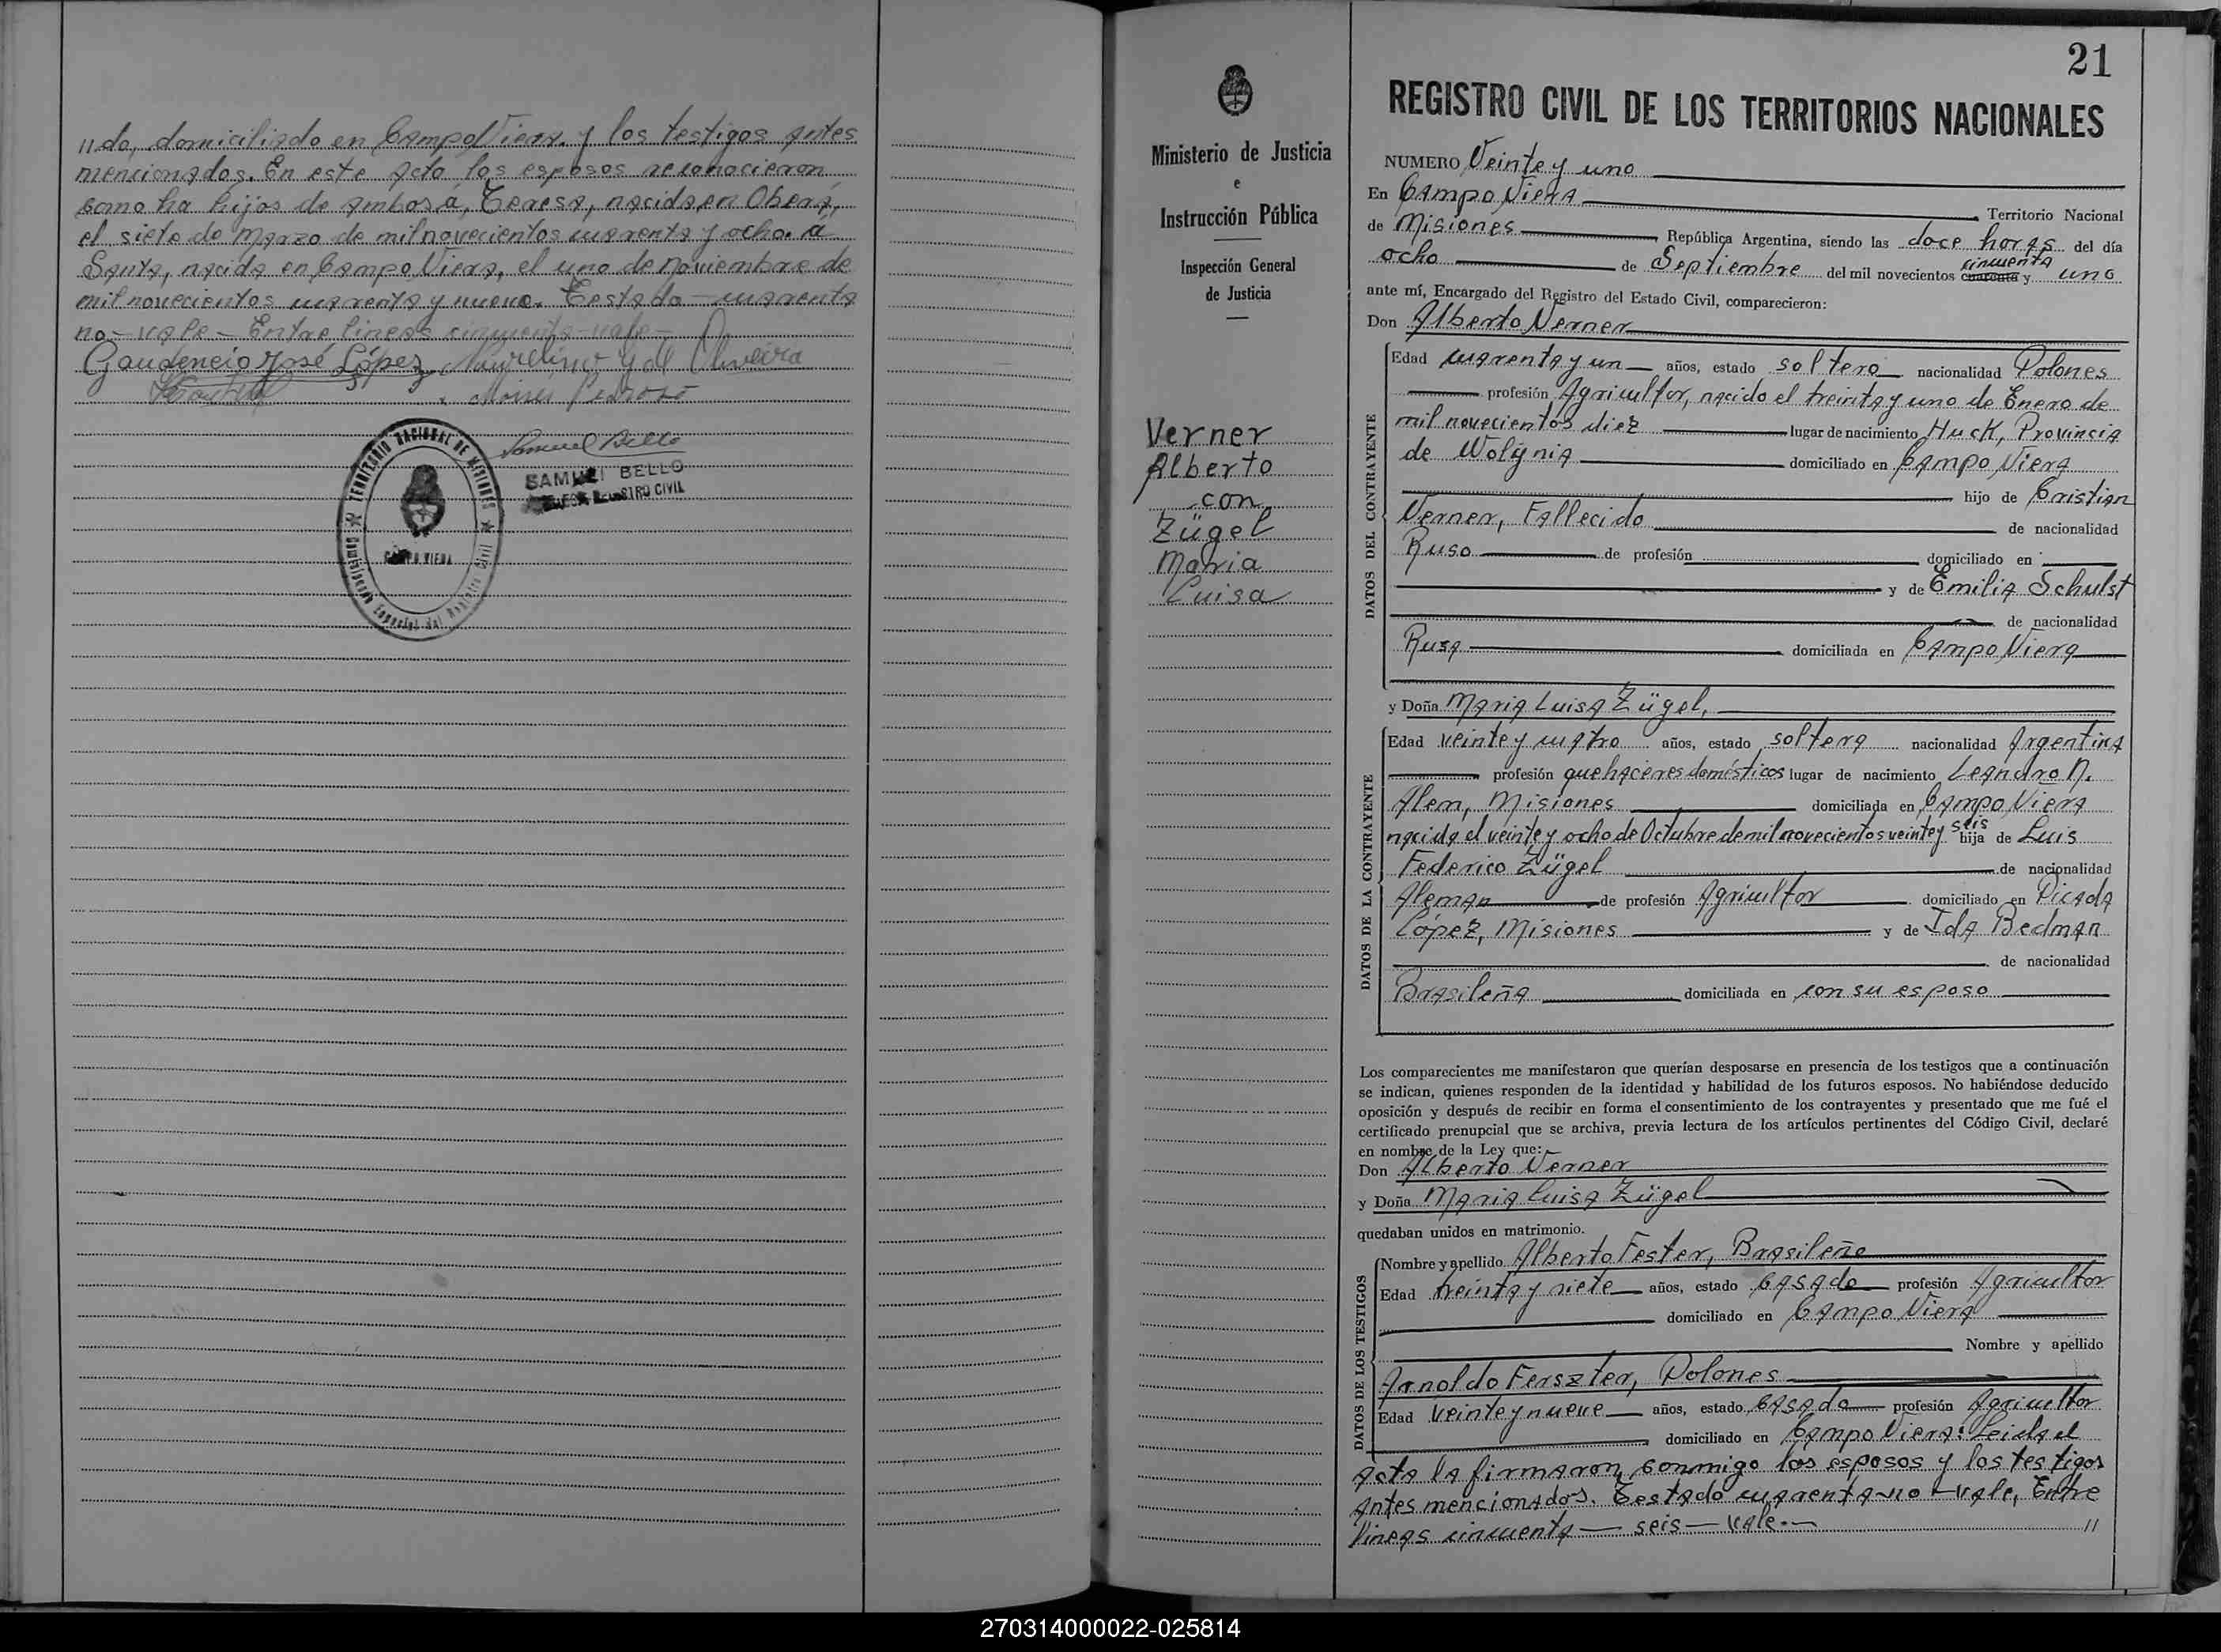 "do, domiciliado en Campo Viera. y los testigos antes
mencionados. En este acto los esposos reconocieron
como ha hijos de ambos á, Teresa, nacida en Oberá,
el siete de Marzo de mil novecientos cuarenta y ocho. á
Santa, nacida en Campo Viera, el uno de Noviembre de
mil novecientos cuarenta y nueve. Testado - cuarenta
no - vale - Entre lineas cincuenta - vale -
Gaudencio José López Aurelino G de Oliveira
Moises Pedroso
Samuel Bello
SAMUEL BELLO
REGISTRO CIVIL
TERRITORIO NACIONAL DE MISIONES
CAMPO VIERA
Comisionado Especial del Registro Civil
21
Ministerio de Justicia
e
Instrucción Pública
Inspección General
de Justicia
Verner
Alberto
con
Zügel
Maria
Luisa
REGISTRO CIVIL DE LOS TERRITORIOS NACIONALES
NUMERO Veinte y uno
En Campo Viera Territorio Nacional
de Misiones República Argentina, siendo las doce horas del día
ocho de Septiembre del mil novecientos cuarenta cincuenta y uno
ante mí, Encargado del Registro del Estado Civil, comparecieron:
Don Alberto Verner
DATOS DEL CONTRAYENTE
Edad cuarenta y un años, estado soltero nacionalidad Polones
profesión Agricultor, nacido el treinta y uno de Enero de
mil novecientos diez lugar de nacimiento Huck, Provincia
de Wolignia domiciliado en Campo Viera
hijo de Cristian
Verner, Fallecido de nacionalidad
Ruso de profesión domiciliado en
y de Emilia Schulst
de nacionalidad
Rusa domiciliada en Campo Viera
y Doña Maria Luisa Zügel,
DATOS DE LA CONTRAYENTE
Edad veinte y cuatro años, estado soltera nacionalidad Argentina
profesión quehaceres domésticos lugar de nacimiento Leandro N.
Alem, Misiones domiciliada en Campo Viera
nacida el veinte y ocho de Octubre de mil novecientos veinte y seis hija de Luis
Federico Zügel de nacionalidad
Aleman de profesión Agricultor domiciliado en Picada
López, Misiones y de Ida Bedman
de nacionalidad
Brasileña domiciliada en con su esposo
Los comparecientes me manifestaron que querían desposarse en presencia de los testigos que a continuación
se indican, quienes responden de la identidad y habilidad de los futuros esposos. No habiéndose deducido
oposición y después de recibir en forma el consentimiento de los contrayentes y presentado que me fué el
certificado prenupcial que se archiva, previa lectura de los artículos pertinentes del Código Civil, declaré
en nombre de la Ley que:
Don Alberto Verner
y Doña Maria Luisa Zügel
quedaban unidos en matrimonio.
DATOS DE LOS TESTIGOS
Nombre y apellido Alberto Fester, Brasileño
Edad treinta y siete años, estado casado profesión Agricultor
domiciliado en Campo Viera
Nombre y apellido
Arnoldo Ferszter, Polones
Edad veinte y nueve años, estado casado profesión Agricultor
domiciliado en Campo Viera: Leida el
acta la firmaron conmigo los esposos y los testigos
antes mencionados. Testado cuarenta - no - vale, Entre
lineas cincuenta - seis - vale. - "
270314000022-025814